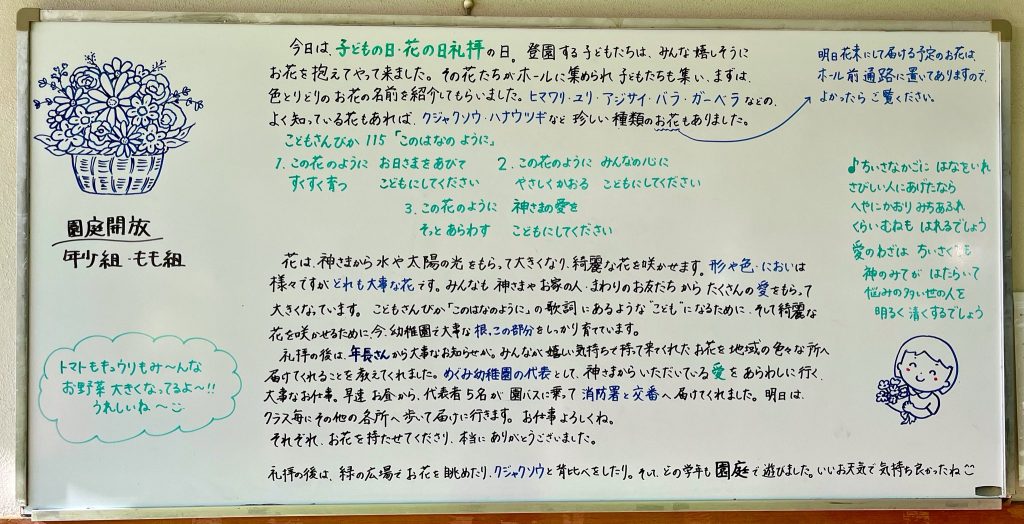 今日は、子どもの日・花の日礼拝の日。登園する子どもたちは、みんな嬉しそうに
お花を抱えてやって来ました。その花たちがホールに集められ子どもたちも集い、まずは、
色とりどりのお花の名前を紹介してもらいました。ヒマワリ・ユリ・アジサイ・バラ・ガーベラなどの、
よく知っている花もあれば、クジャクソウ・ハナウツギなど珍しい種類のお花もありました。
明日花束にして届ける予定のお花は、
ホール前通路に置いてありますので、
よかったらご覧ください。
こどもさんびか 115「このはなのように」
1. この花のように お日さまをあびて
すくすく育つ こどもにしてください
2. この花のように みんなの心に
やさしくかおる こどもにしてください
3. この花のように 神さまの愛を
そっとあらわす こどもにしてください
♪ちいさなかごに はなをいれ
さびしい人にあげたなら
へやにかおり みちあふれ
くらいむねも はれるでしょう
愛のわざは ちいさくも
神のみてが はたらいて
悩みの多い世の人を
明るく清くするでしょう
園庭開放
年少組・もも組
花は、神さまから水や太陽の光をもらって大きくなり、綺麗な花を咲かせます。形や色・においは
様々ですがどれも大事な花です。みんなも神さまやお家の人・まわりのお友だちからたくさんの愛をもらって
大きくなっています。こどもさんびか「このはなのように」の歌詞にあるような“こども”になるために、そして綺麗な
花を咲かせるために、今、幼稚園で大事な根っこの部分をしっかり育てています。
礼拝の後は、年長さんから大事なお知らせが。みんなが嬉しい気持ちで持って来てくれたお花を地域の色々な所へ
届けてくれることを教えてくれました。めぐみ幼稚園の代表として、神さまからいただいている愛をあらわしに行く、
大事なお仕事。早速お昼から、代表者5名が園バスに乗って消防署と交番へ届けてくれました。明日は、
クラス毎にその他の各所へ歩いて届けに行きます。お仕事よろしくね。
それぞれ、お花を持たせてくださり、本当にありがとうございました。
トマトもキュウリもみ〜んな
お野菜大きくなってるよ〜!!
うれしいね〜
礼拝の後は、緑の広場でお花を眺めたり、クジャクソウと背比べをしたり。そして、どの学年も園庭で遊びました。いいお天気で気持ち良かったね